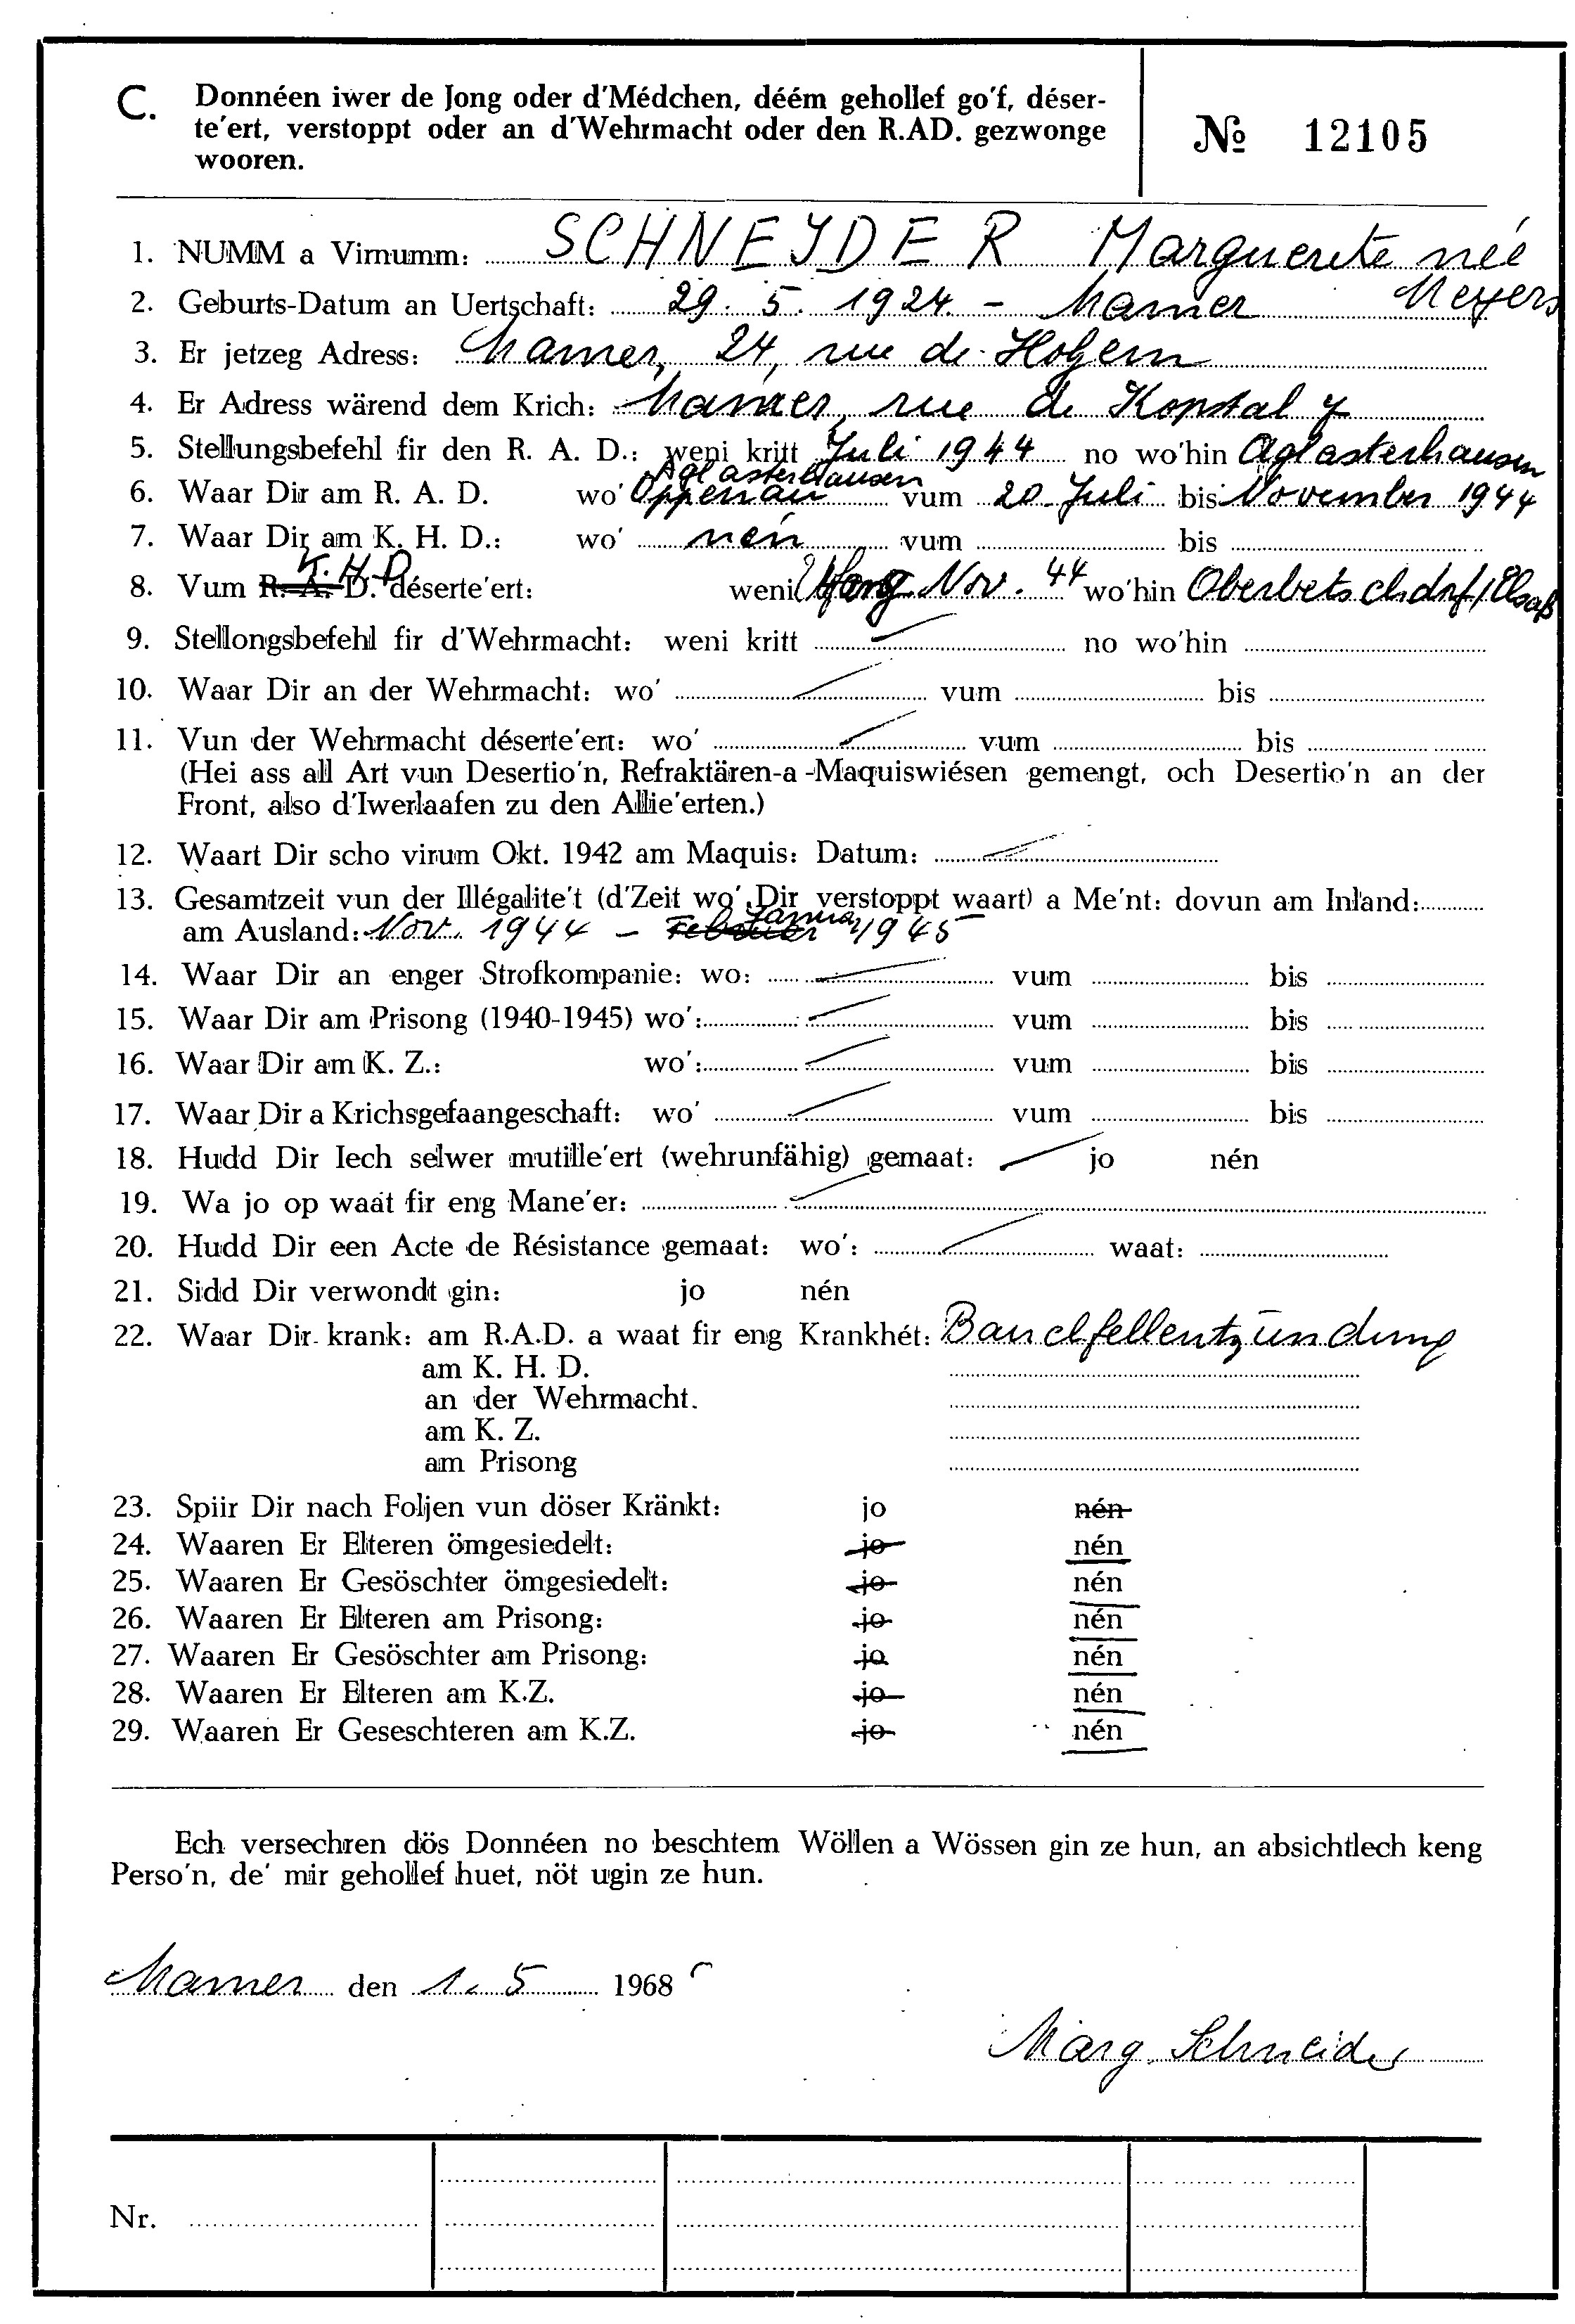 C. Donnéen iwer de Jong oder d'Médchen, déém gehollef go'f, déser-
te'ert, verstoppt oder an d'Wehrmacht oder den R.AD. gezwonge
wooren.
№ 12105
1. NUMM a Virnumm: SCHNEJDER Marguerite née
Meyers
2. Geburts-Datum an Uertschaft: 29. 5. 1924. - Mamer
3. Er jetzeg Adress: Mamer, 24, rue de Holzem
4. Er Adress wärend dem Krich: Mamer, rue de Kopstal 7
5. Stellungsbefehl fir den R. A. D.: weni kritt Juli 1944 no wo'hin Aglasterhausen
Aglasterhausen
6. Waar Dir am R. A. D. wo' Oppenau vum 20. Juli bis November 1944
7. Waar Dir am K. H. D.: wo' nén vum bis
K.H.D
8. Vum R. A. D. déserte'ert: weni Anfang Nov. 44 wo'hin Oberbetschdorf/Elsaß
9. Stellongsbefehl fir d'Wehrmacht: weni kritt no wo'hin
10. Waar Dir an der Wehrmacht: wo' vum bis
11. Vun der Wehrmacht déserte'ert: wo' vum bis
(Hei ass all Art vun Desertio'n, Refraktären-a-Maquiswiésen gemengt, och Desertio'n an der
Front, also d'Iwerlaafen zu den Allie'erten.)
12. Waart Dir scho virum Okt. 1942 am Maquis: Datum:
13. Gesamtzeit vun der Illégalite't (d'Zeit wo' Dir verstoppt waart) a Me'nt: dovun am Inland:
am Ausland: Nov. 1944 - Februar Januar 1945
14. Waar Dir an enger Strofkompanie: wo: vum bis
15. Waar Dir am Prisong (1940-1945) wo': vum bis
16. Waar Dir am K. Z.: wo': vum bis
17. Waar Dir a Krichsgefaangeschaft: wo' vum bis
18. Hudd Dir Iech selwer mutille'ert (wehrunfähig) gemaat: jo nén
19. Wa jo op waat fir eng Mane'er:
20. Hudd Dir een Acte de Résistance gemaat: wo': waat:
21. Sidd Dir verwondt gin: jo nén
22. Waar Dir krank: am R.A.D. a waat fir eng Krankhét: Bauchfellentzündung
am K. H. D.
an der Wehrmacht.
am K. Z.
am Prisong
23. Spiir Dir nach Foljen vun döser Kränkt: jo nén
24. Waaren Er Elteren ömgesiedelt: jo nén
25. Waaren Er Gesöschter ömgesiedelt: jo nén
26. Waaren Er Elteren am Prisong: jo nén
27. Waaren Er Gesöschter am Prisong: jo nén
28. Waaren Er Elteren am K.Z. jo nén
29. Waaren Er Geseschteren am K.Z. jo nén
Ech versechren dös Donnéen no beschtem Wöllen a Wössen gin ze hun, an absichtlech keng
Perso'n, de' mir gehollef huet, nöt ugin ze hun.
Mamer den 1. 5 1968
Marg. Schneider
Nr.